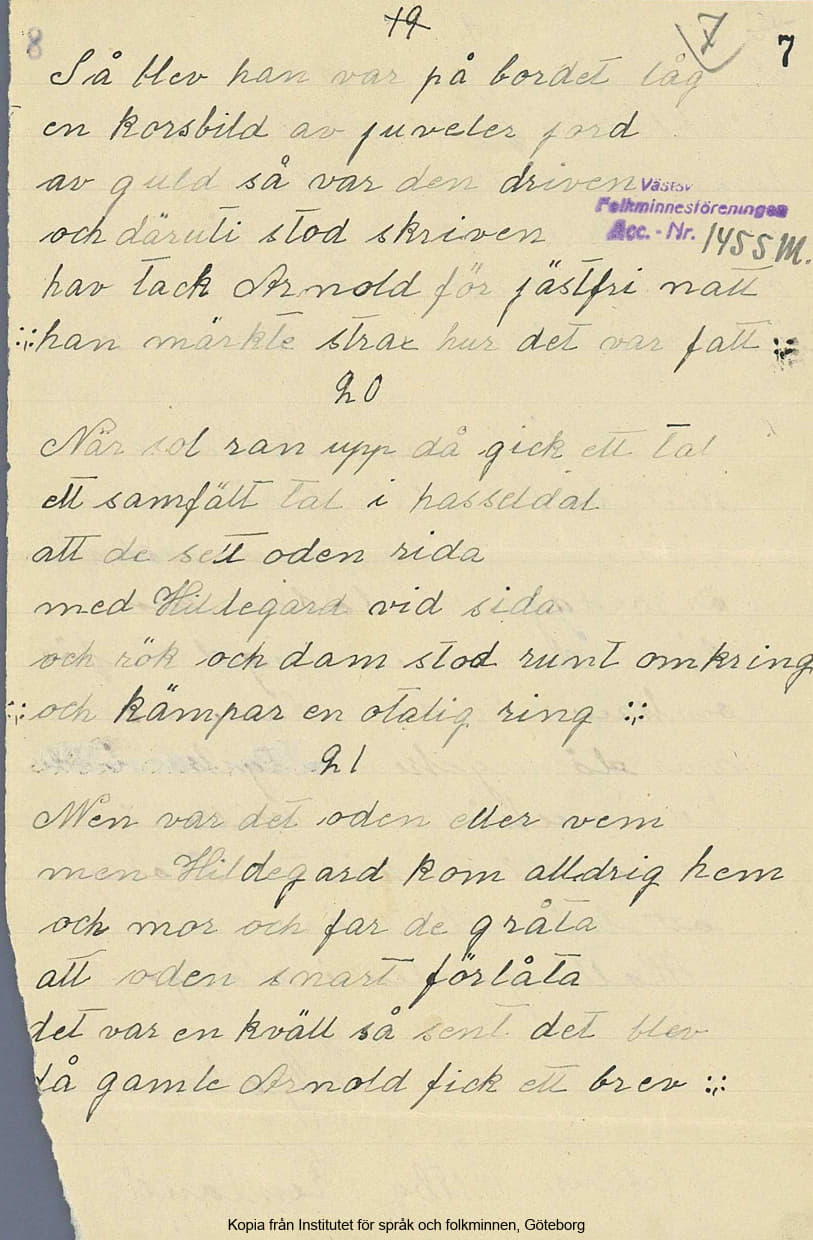 19
7
7
8
Så blev han var på bordet låg
en korsbild av juveler jord
av guld så var den driven
Västsv
Folkminnesföreningen
Acc.-Nr. 1455 M.
och däruti stod skriven
hav tack Arnold för jästfri natt
:,: han märkte strax hur det var fatt :,:
20
När sol ran upp då gick ett tal
ett samfält tal i hasseldal
att de sett oden rida
med Hildegard vid sida
och rök och dam stod runt omkring
:,: och kämpar en otalig ring :,:
21
Men var det oden eller vem
men Hildegard kom alldrig hem
och mor och far de gråta
att oden snart förlåta
det var en kväll så sent det blev
då gamle Arnold fick ett brev :,:
Kopia från Institutet för språk och folkminnen, Göteborg